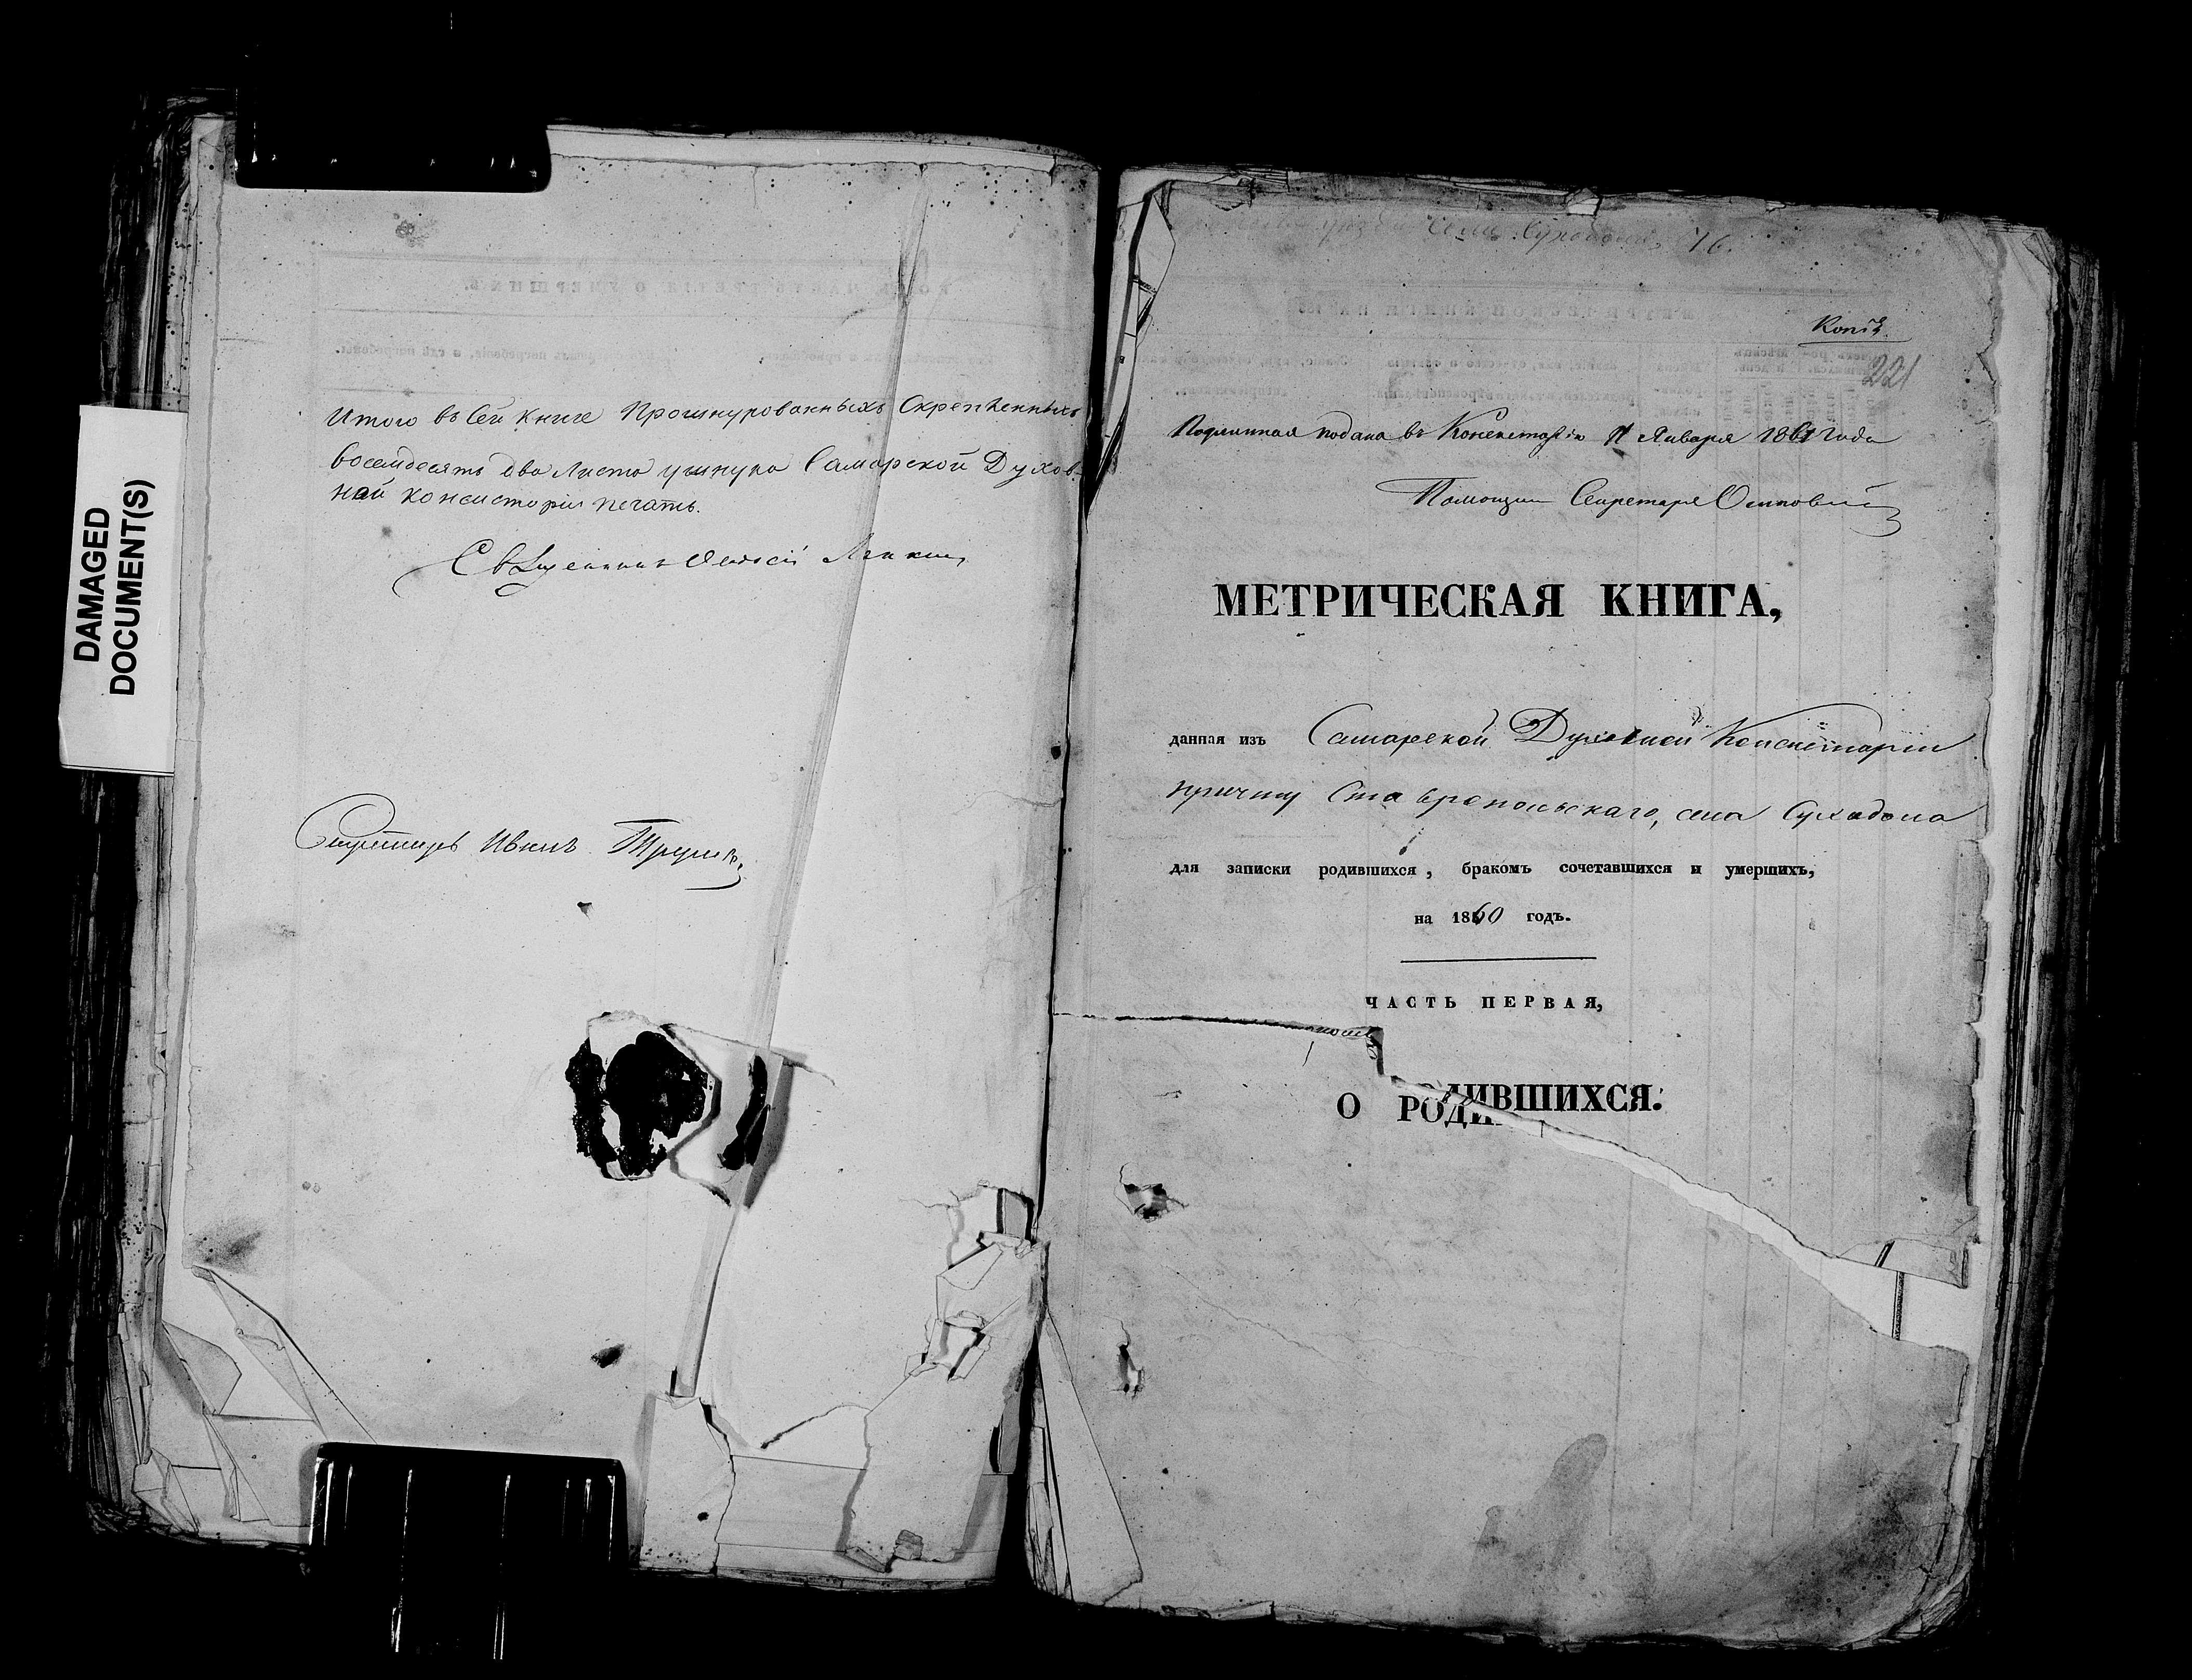 DAMAGED
DOCUMENT(S)
Итого въ сей книге Прошнурованныхъ Скрепленныхъ
восемдесятъ два листа ушнура Самарской Духов-
ной консисторіи печать.
Священникъ Алексій
Секретарь Иванъ
села Суходола, 16.
Копія
221
Подлинная подана въ Консисторію 11 Января 1861 года
Помощн Секретаря
МЕТРИЧЕСКАЯ КНИГА,
данная изъ Самарской Духовной Консисторіи
причту Ставропольскаго, села Суходола
для записки родившихся, бракомъ сочетавшихся и умершихъ,
на 1860 годъ.
ЧАСТЬ ПЕРВАЯ,
О РОДИВШИХСЯ.